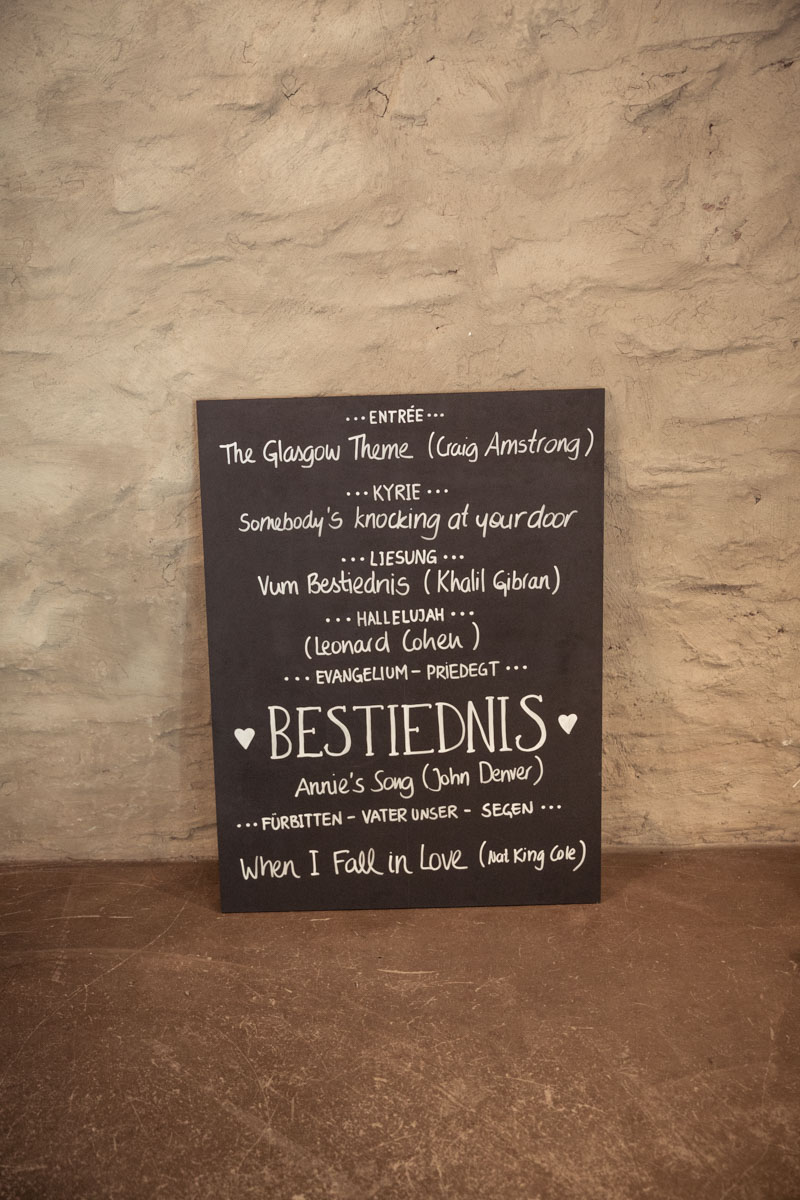 ···ENTRÉE···
The Glasgow Theme (Craig Amstrong)
···KYRIE···
Somebody's knocking at your door
···LIESUNG···
Vum Bestiednis (Khalil Gibran)
···HALLELUJAH···
(Leonard Cohen)
···EVANGELIUM – PRIEDEGT···
♥ BESTIEDNIS ♥
Annie's Song (John Denver)
···FÜRBITTEN – VATER UNSER – SEGEN···
When I Fall in Love (Nat King Cole)